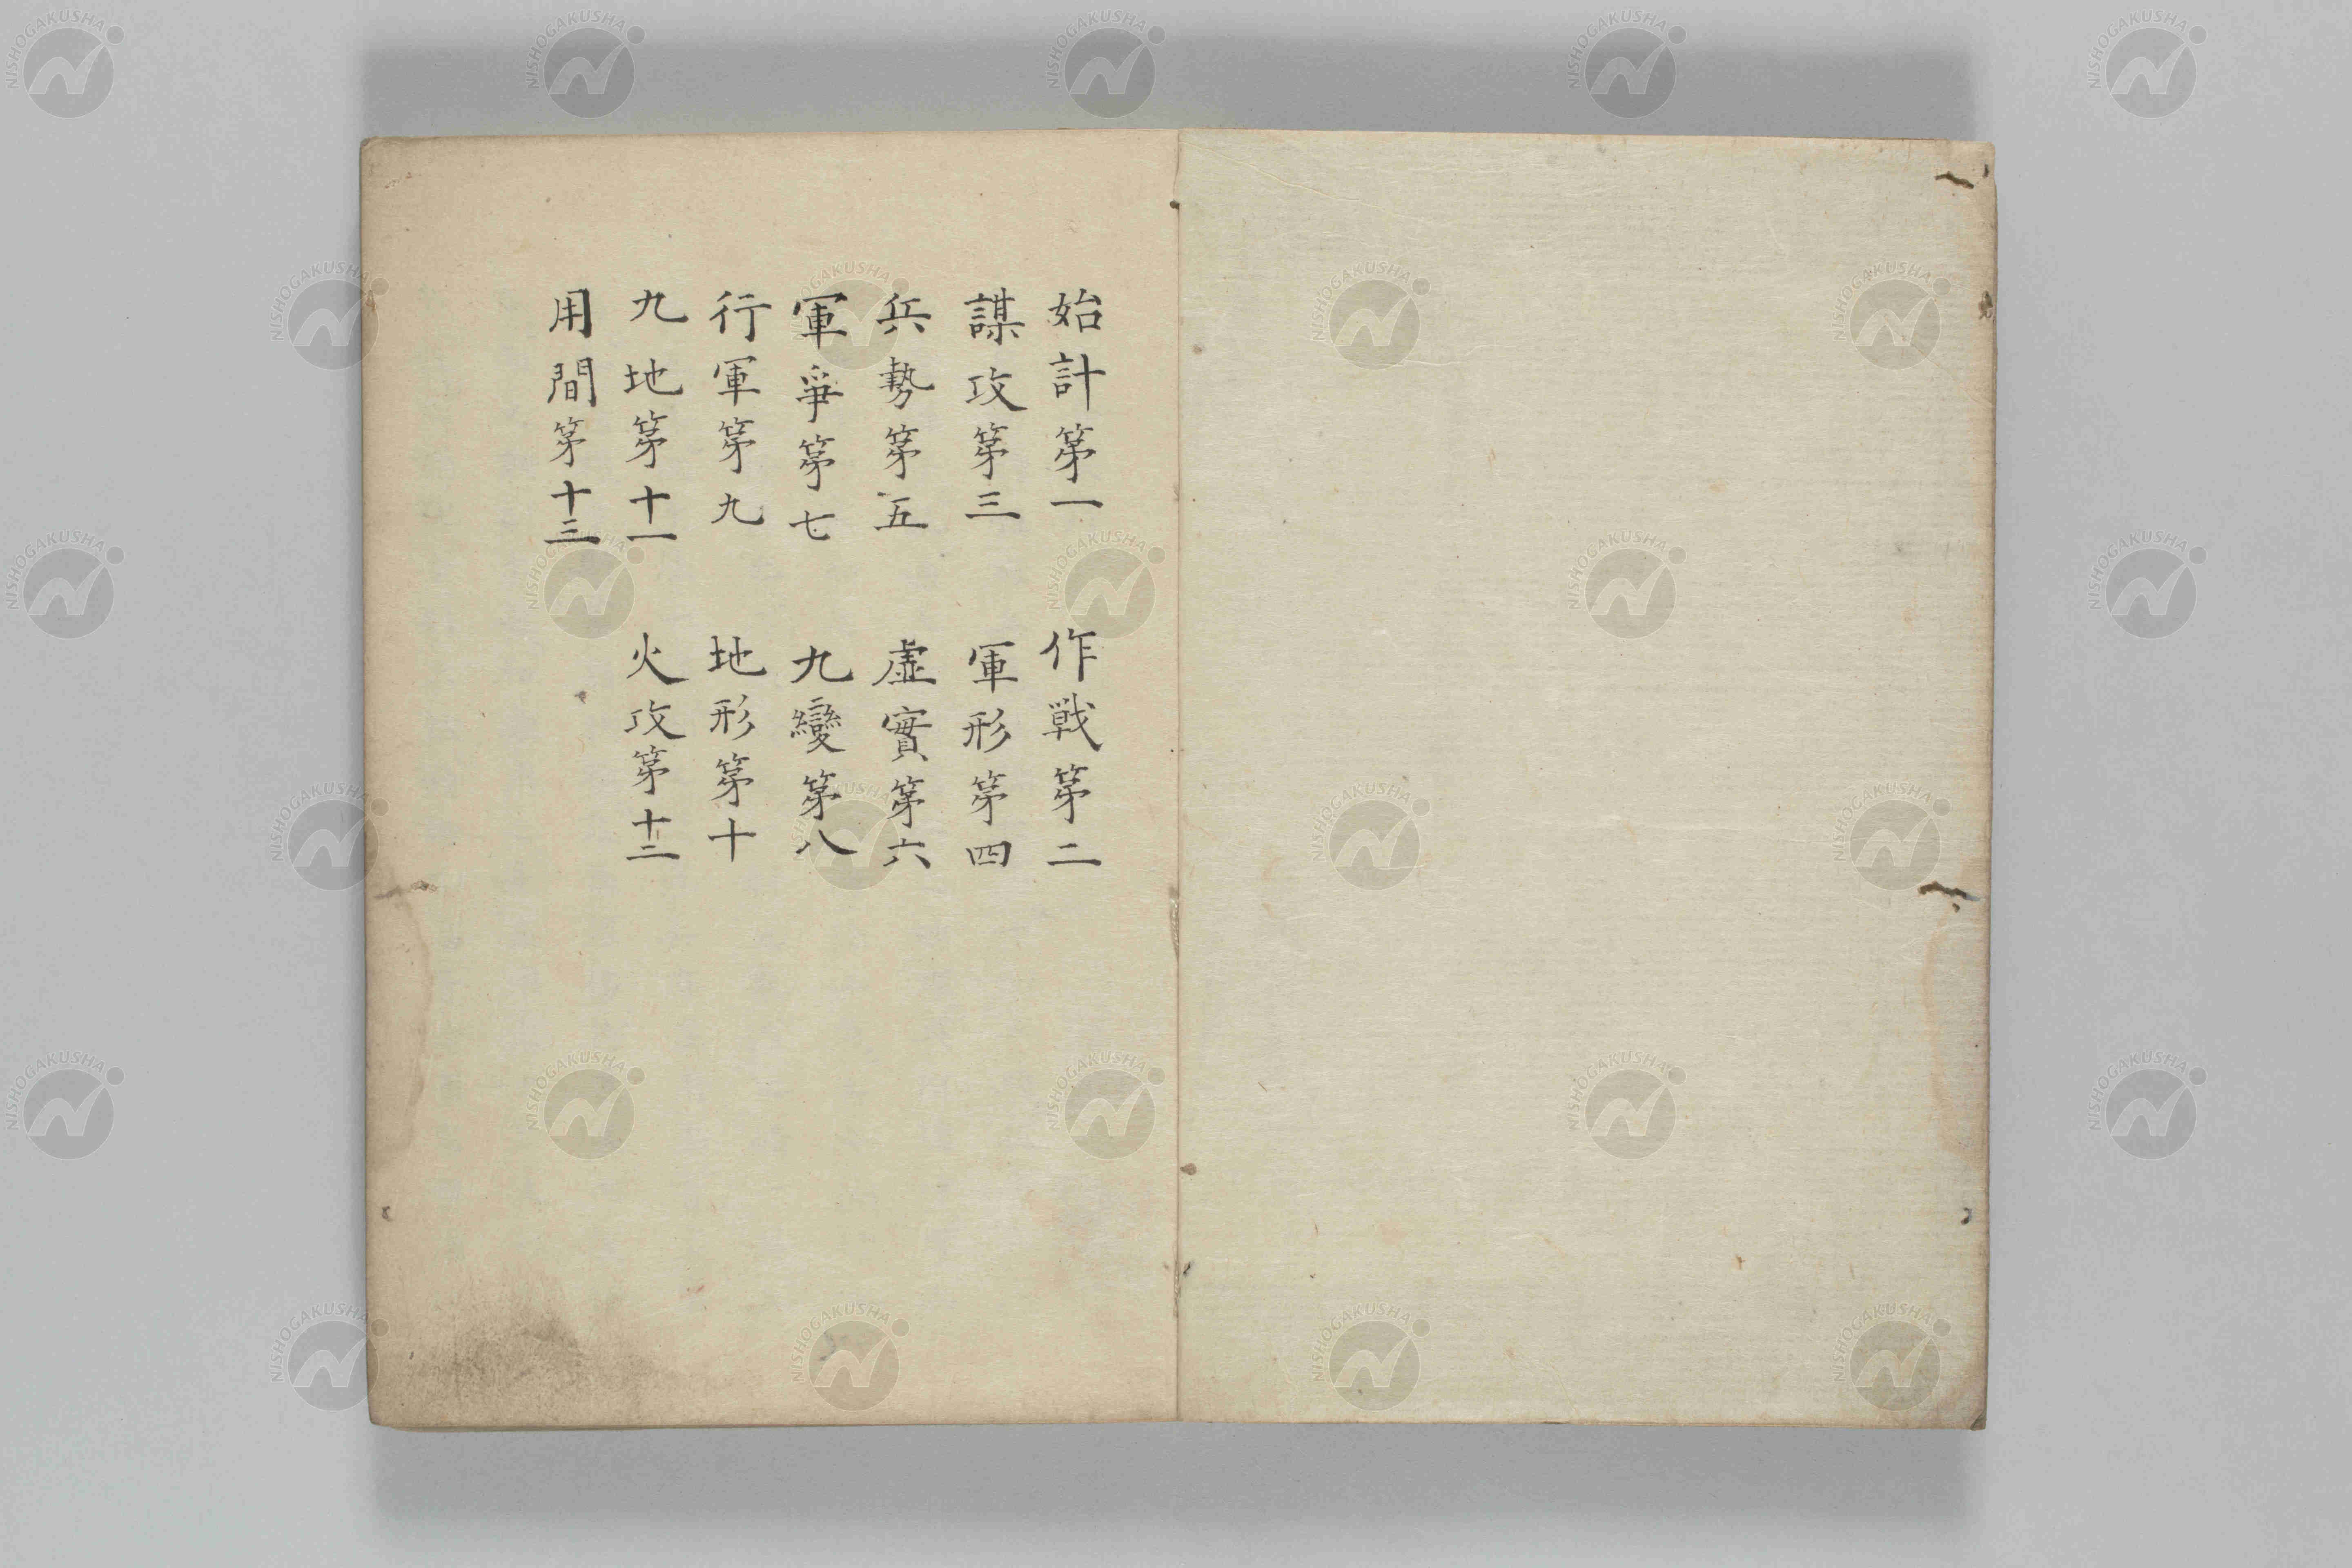 始計第一
作戦第二
謀攻第三
軍形第四
兵勢第五
虛實第六
軍爭第七
九變第八
行軍第九
地形第十
九地第十一
火攻第十二
用間第十三
NISHOGAKUSHA